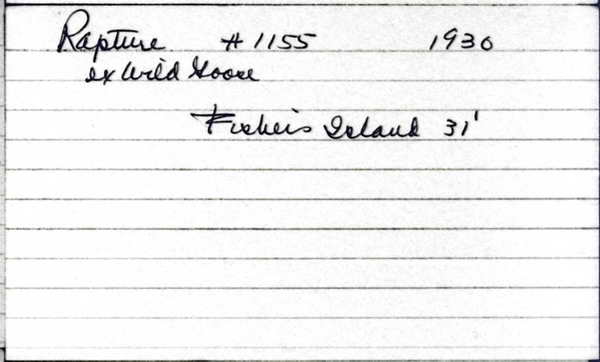 Rapture #1155 1930
ex Wild Goose
Fishers Island 31'